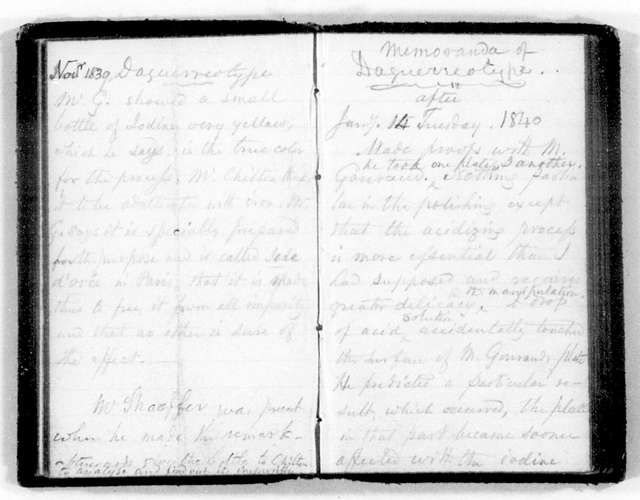 Novr 1839 Daguerreotype
Mr G. showed a small
bottle of Iodine very yellow,
which he says is the true color
for the process, Mr Chilton
it to be adulterated with iron. Mr
G. says it is specially prepared
for the purpose and is called Iode
d'orée in Paris, that it is made
thus to free it from all impurities
and that no other is sure of
the effect.
Mr Shaeffer was present
when he made the remark -
afterwards to Chilton
to analyse and find out its impurities
Memoranda of
Daguerreotype.
after
Jany. 14 Tuesday. 1840
Made proofs with M.
he took one plate, I another.
Gouraud. Nothing particu
lar in the polishing except
that the acidizing process
is more essential than I
had supposed and requires
in the manipulation.
greater delicacy, a drop
solution
of acid accidentally touched
the surface of M. Gouraud's plate
He predicted a particular re-
sult, which occurred, the plate
in that part became sooner
affected with the iodine